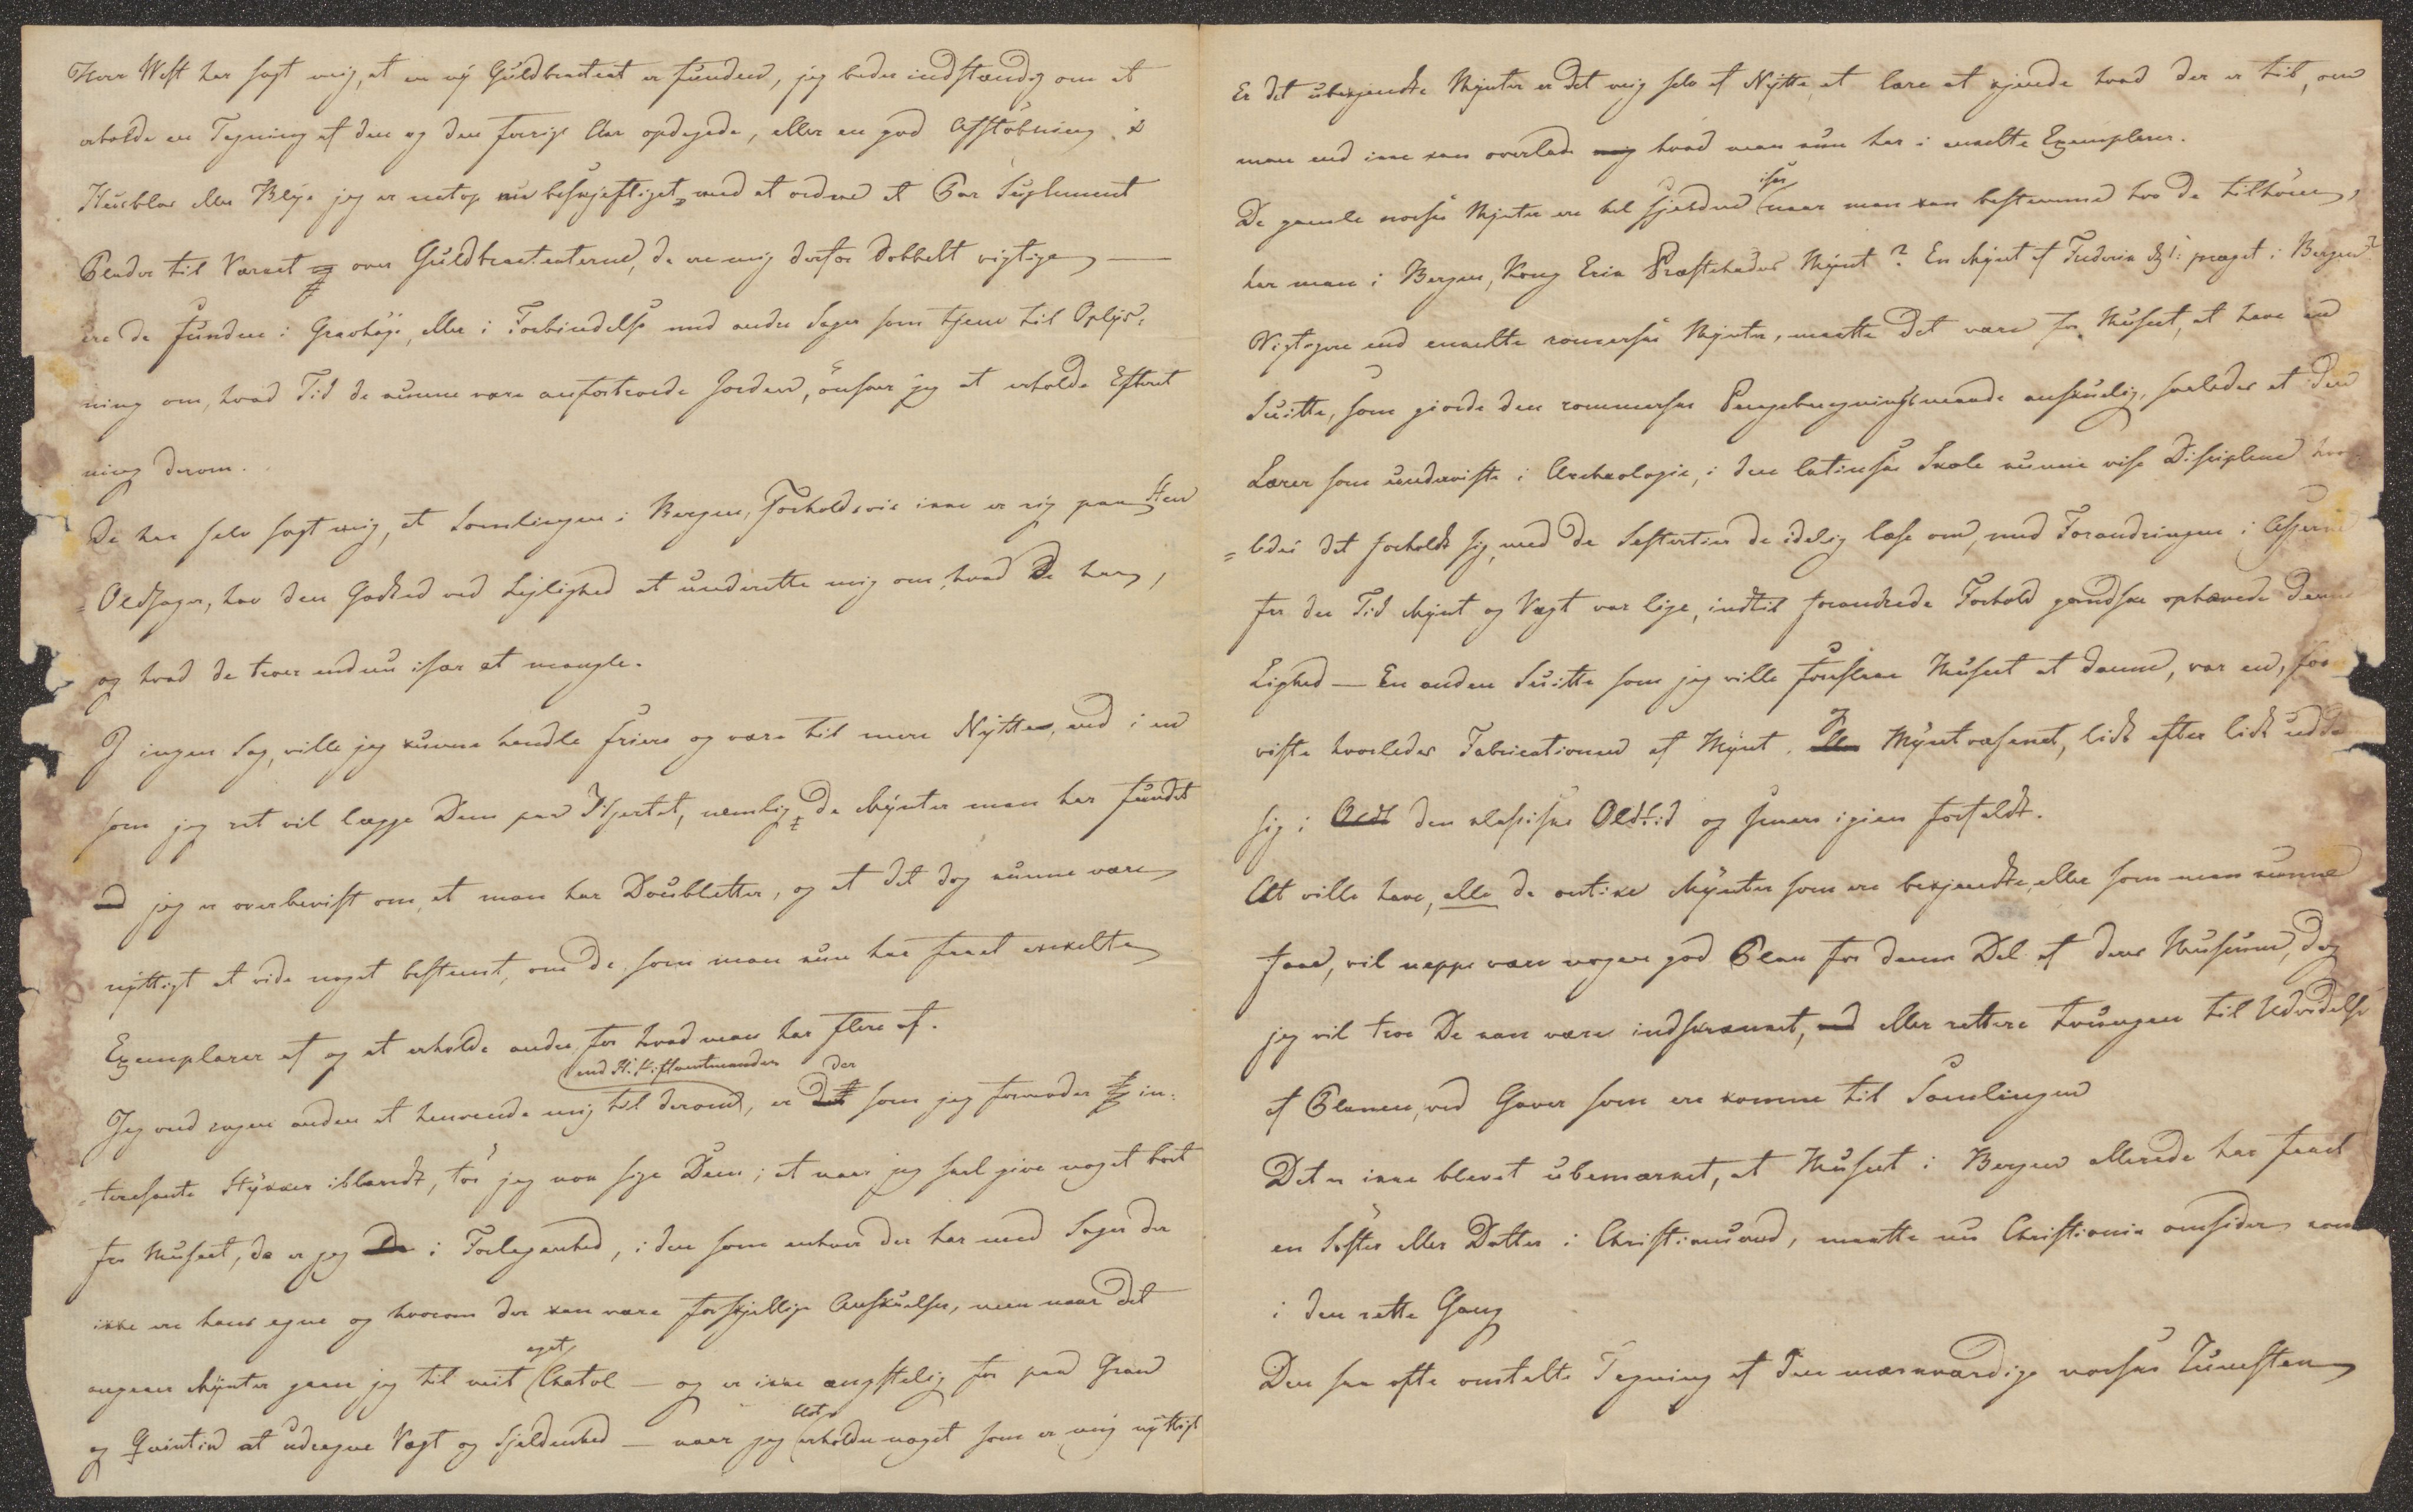 Herr West har sagt mig, at en ny Guldbracteat er funden, jeg beder indstændig om at
erholde en Tegning af den og den forrige Aar opdagede, eller en god Afstøbning i
Huusblas eller Blye jeg er netop nu beskjeftiget med at ordne et Par Suplement
Plader til Værket over Guldbracteaterne, de ere mig derfor dobbelt vigtige —
ere de fundne i Gravhøje, eller i Forbindelse med andre Sager som tjene til Oplys-
ning om, hvad Tid de kunne være anfortroede Jorden, ønsker jeg at erholde Efterret
ning derom.
De har selv sagt mig, at Samlingen i Bergen, Forholdsvis ikke er rig paa Steen
=Oldsager, hav den Godhed ved Lejlighed at underrette mig om, hvad De har,
og hvad de troer endnu især at mangle.
I ingen Sag, ville jeg kunne handle friere og være til mere Nytte, end i en
som jeg ret vil lægge Dem paa Hjertet, nemlig de Mynter man har fundet
jeg er overbevist om, at man har Doubletter, og at det dog kunne være
nyttigt at vide noget bestemt, om de som man kun har faaet enkelte
Exemplarer af og at erholde andre for hvad man har flere af.
end H: Stiftamtmanden der
Jeg veed ingen anden at henvende mig til derom, er det som jeg formoder in-
teresante Stykker iblandt, tør jeg nok sige Dem; at naar jeg skal give noget bort
for Museet, da er jeg i Forlegenhed, i den som enhver der har med Sager der
ikke ere hans egne og hvorom der kan være forskjellige Anskuelser, men naar det
eget
angaaer Mynter gaaer jeg til mit Chatol — og er ikke ængstelig for paa Gran
og Qvintin at udregne Vægt og Sjeldenhed — naar jeg erholder noget som er mig nyttigt
Er det ubekjendte Mynter er det mig selv af Nytte, at lære at kjende hvad der er til, om
man end ikke kan overlade mig hvad man kun har i enkelte Exemplarer.
især
De gamle norske Mynter ere hel sjeldne naar man kan bestemme hvo de tilhøre,
har man i Bergen, Kong Erik Præstehaders Mynt? En Mynt af Frederik d 1: præget i Bergen
Vigtigere end enkelte romerske Mynter, maatte det være for Museet, at have en
Suitte, som giorde den rommerske Pengeberegningsmaade anskuelig, saaledes at den
Lærer som underviste i Archæologie, i den latinske Skole kunne vise Disciplene hvor
=ledes det forholdt sig, med de Sestertier de idelig læse om, med Forandringen i Asserne
for den Tid Mynt og Vægt var lige, indtil forandrede Forhold gandske ophævede denne
Lighed — En anden Suitte som jeg ville foreslaae Museet at danne, var en, som
og
viste hvorledes Fabricationen af Mynt, Myntvæsenet, lidt efter lidt udda
sig i Oldt den classiske Oldtid og senere igien forfaldt.
At ville have, alle de antike Mynter som ere bekjendte, eller som man kunne
faae, vil neppe være nogen god Plan for denne Del af deres Museum, dog
jeg vil troe De kan være indskrænket, eller rettere tvungen til Udvidelse
af Planen, ved Gaver som ere komne til Samlingen
Det er ikke blevet ubemærket, at Museet i Bergen allerede har faaet
en Søster eller Datter i Christiansund, maatte nu Christiania omsider kom
i den rette Gang
Den saa ofte omtalte Tegning af den mærkværdige norske Tunesten